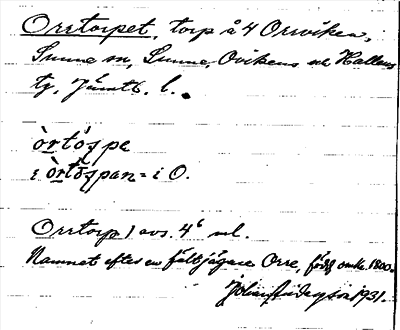 Orrtorpet, torp å 4 Orrviken,
Sunne sn, Sunne, Ovikens o Hallens
tg, Jämtl. l.
òrtó̜rpe
i òrtó̜rpan = i O.
Orrtorp 1 avs. 4⁶ ml.
Namnet efter en fältjägare Orre, född omkr. 1800.
1931.